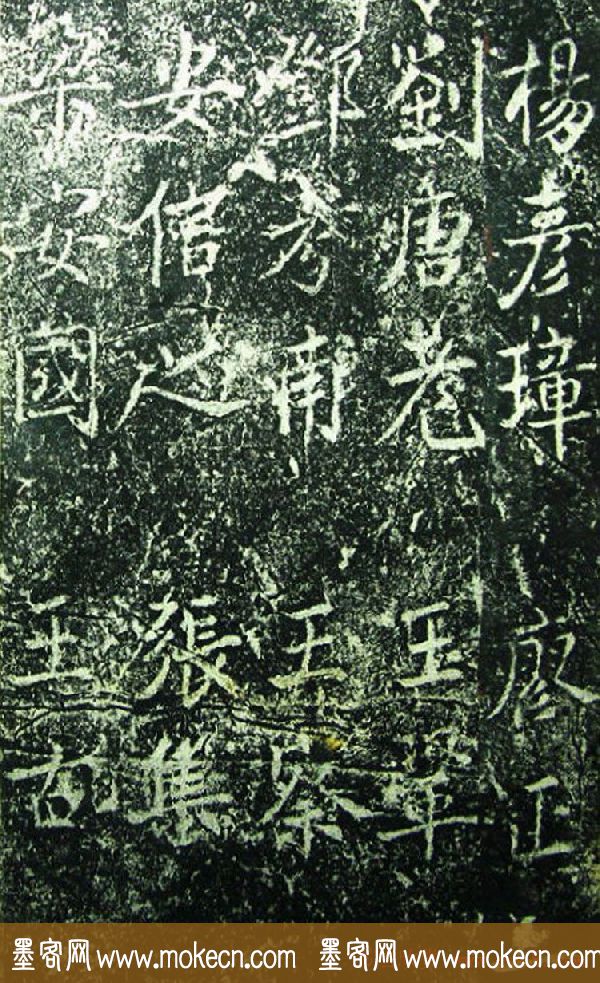 楊彥璋 廖正
劉唐老 王
鄧考甫 王察
安信之 張集
梁安國 王古
墨客网 www.mokecn.com 墨客网 www.mokecn.com